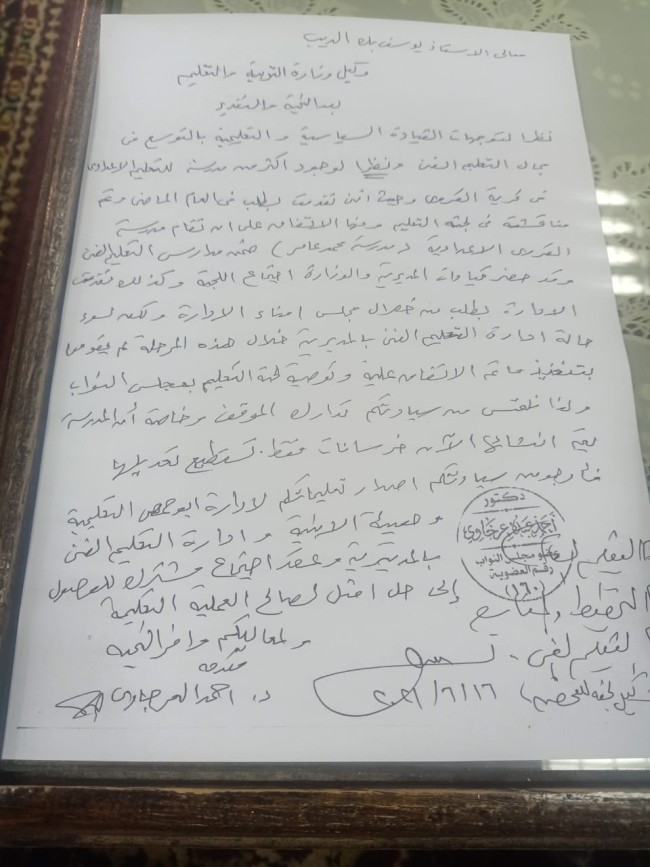 معالى الاستاذ يوسف بك الديب
وكيل وزارة التربية والتعليم
بعد التحية والتقدير
نظرا لتوجهات القيادة السياسية والتعليمية بالتوسع فى
مجال التعليم الفنى ونظرا لوجود اكثر من مدرسة للتعليم الاعدادى
فى قرية القروى وحيث اننى تقدمت بطلب فى العام الماضى وتم
مناقشته فى لجنة التعليم وتم الاتفاق على ان تقام مدرسة
القروى الاعدادية (مدرسة محمد عامر) ضمن مدارس التعليم الفنى
وقد حضر قيادات المديرية والوزارة اجتماع اللجنة وكذلك تقدمت
الادارة بطلب من خلال مجلس امناء الادارة ولكن لسوء
حالة ادارة التعليم الفنى بالمديرية خلال هذه المرحلة لم يقوموا
بتنفيذ ما تم الاتفاق عليه وتوصية لجنة التعليم بمجلس النواب
ولذا نلتمس من سيادتكم تدارك الموقف وخاصة أن المدرسة
يتم انشائها الآن خرسانات فقط. نستطيع تعديلها
فأرجو من سيادتكم اصدار تعليماتكم لادارة ابوحمص التعليمية
وهيئة الابنية وادارة التعليم الفنى
بالمديرية وعقد اجتماع مشترك للوصول
إلى حل امثل لصالح العملية التعليمية
ولمعاليكم وافر التحية
مقدمه
د. احمد العرجاوى
دكتور
عضو مجلس النواب
رقم العضوية
(١٦٠)
التعليم الفنى
التخطيط و
التعليم الفنى
٢٠٢١/٦/١٦